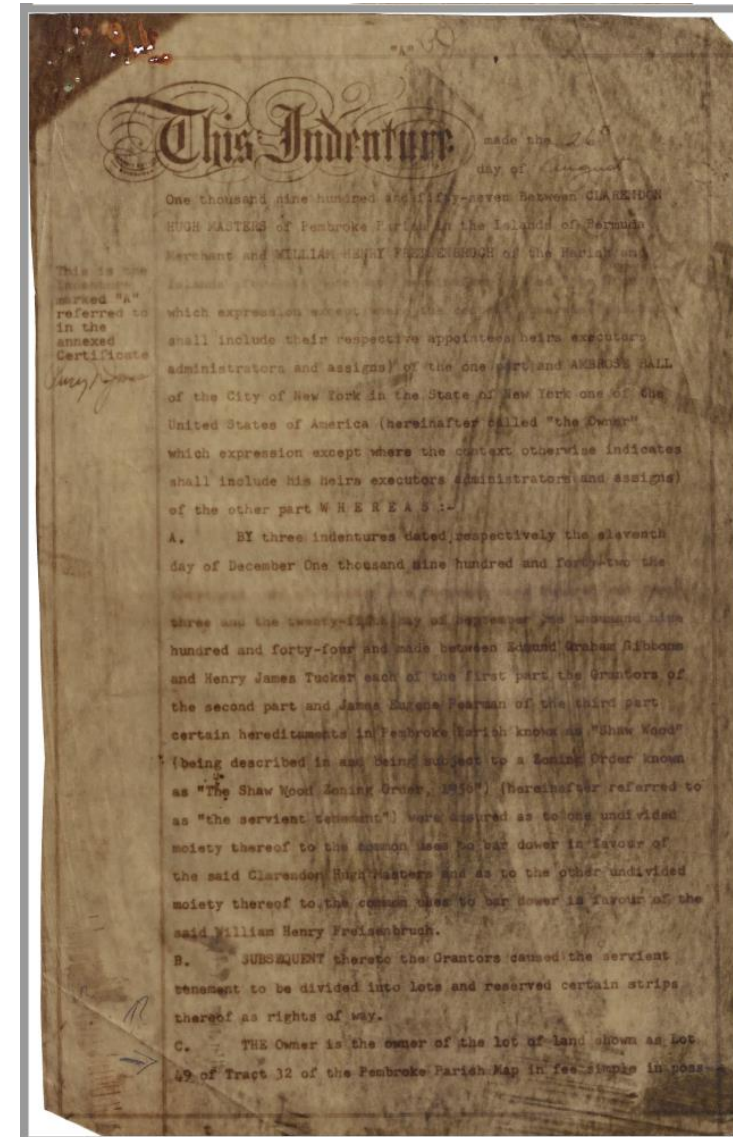 This Indenture made the 26th
day of August
One thousand nine hundred and fifty-seven Between CLARENDON
HUGH MASTERS of Pembroke Parish in the Islands of Bermuda
Merchant and WILLIAM HENRY FREISENBRUCH of the Parish and
which expression except where the
shall include their respective appointees heirs executors
administrators and assigns) of the one part and AMBROSE HALL
of the City of New York in the State of New York one of the
United States of America (hereinafter called "the Owner"
which expression except where the context otherwise indicates
shall include his heirs executors administrators and assigns)
of the other part W H E R E A S :-
A. BY three indentures dated respectively the eleventh
day of December One thousand nine hundred and forty-two the
three and the twenty-fifth day of September One thousand nine
hundred and forty-four and made between Edmund Graham Gibbons
and Henry James Tucker each of the first part the Grantors of
the second part and James Eugene Pearman of the third part
certain hereditaments in Pembroke Parish known as "Shaw Wood"
(being described in and being subject to a Zoning Order known
as "The Shaw Wood Zoning Order, 1956") (hereinafter referred to
as "the servient tenement") were assured as to one undivided
moiety thereof to the common uses to bar dower in favour of
the said Clarendon Hugh Masters and as to the other undivided
moiety thereof to the common uses to bar dower in favour of the
said William Henry Freisenbruch.
B. SUBSEQUENT thereto the Grantors caused the servient
tenement to be divided into lots and reserved certain strips
thereof as rights of way.
C. THE Owner is the owner of the lot of land shown as Lot
49 of Tract 32 of the Pembroke Parish Map in fee simple in poss-
This is the
Indenture
marked "A"
referred to
in the
annexed
Certificate